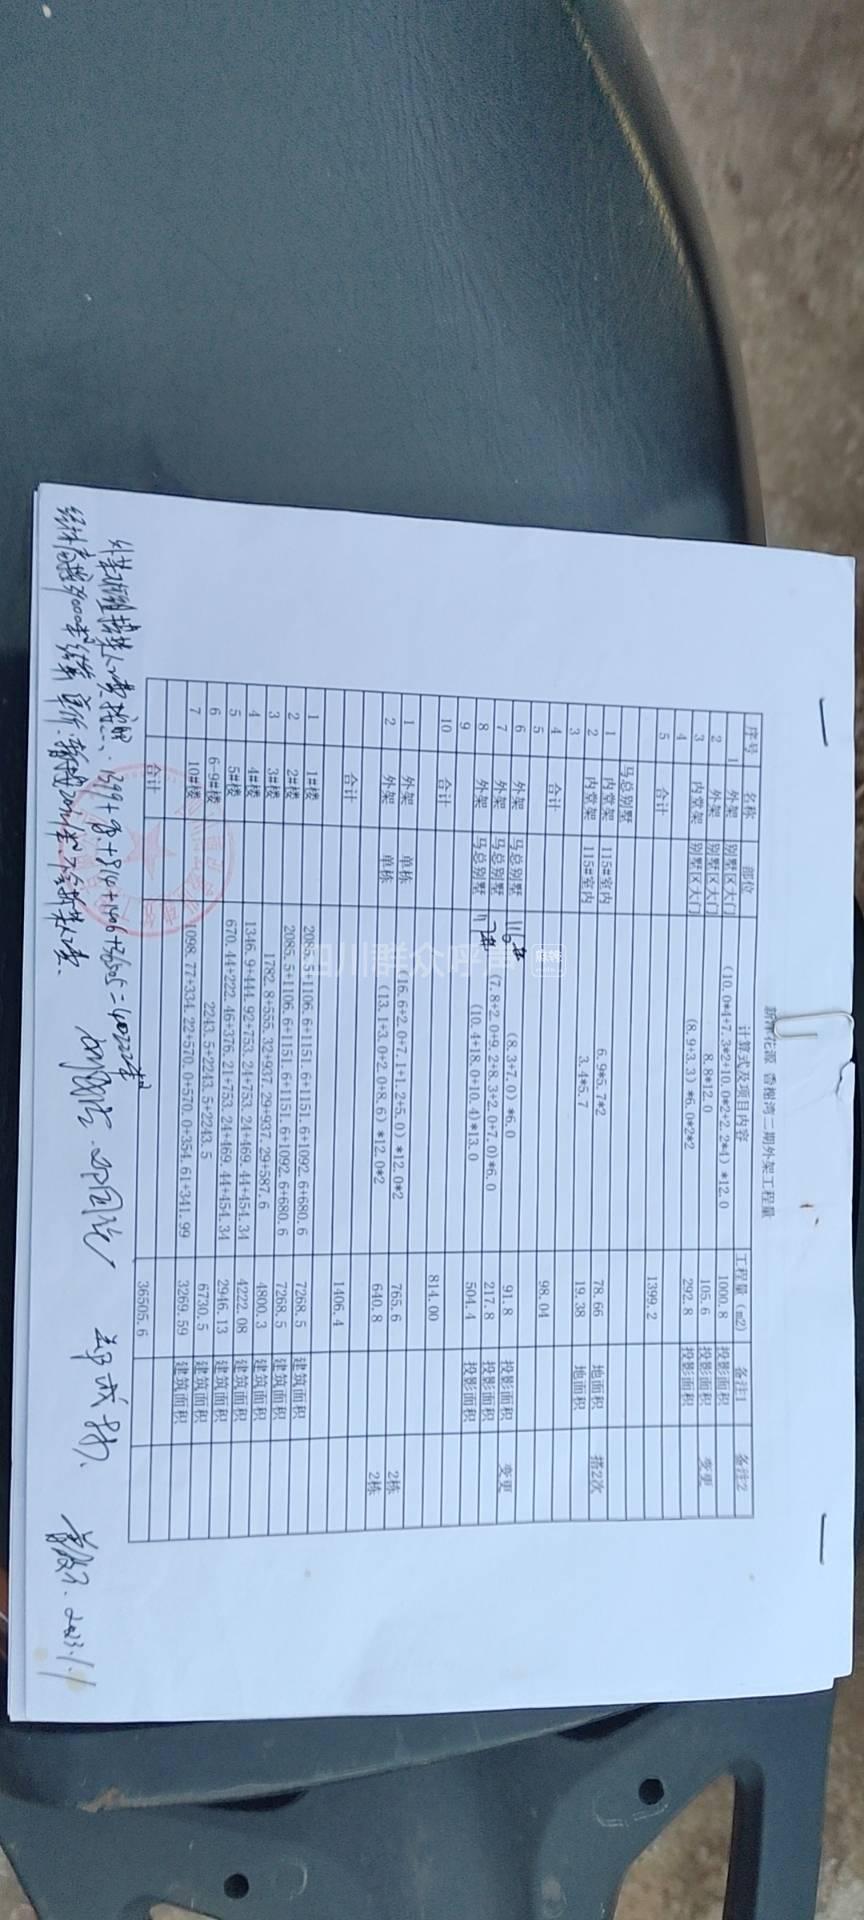 香榭湾二期外架工程量
序号 名称 部位 计算式及项目内容 工程量（m2） 备注1 备注2
1 外架 别墅区大门 (10.0*4+7.3*2+10.0*2+2.2*4)*12.0 1000.8 投影面积
2 外架 别墅区大门 8.8*12.0 105.6 投影面积 变更
3 内堂架 别墅区大门 (8.9+3.3)*6.0*2*2 292.8 投影面积
4
5 合计 1399.2
马总别墅
1 内堂架 115#室内 6.9*5.7*2 78.66 地面积 搭2次
2 内堂架 115#室内 3.4*5.7 19.38 地面积
3
4 合计 98.04
5
6 外架 马总别墅 116# (8.3+7.0)*6.0 91.8 投影面积 变更
7 外架 马总别墅 (7.8+2.0+9.2+8.3+2.0+7.0)*6.0 217.8 投影面积
8 外架 马总别墅 117# (10.4+18.0+10.4)*13.0 504.4 投影面积
9
10 合计 814.00
1 外架 单栋 16.6+2.0+7.1+1.2+5.0)*12.0*2 765.6 2栋
2 外架 单栋 (13.1+3.0+2.0+8.6)*12.0*2 640.8 2栋
合计 1406.4
1 1#楼 2085.5+1106.6+1151.6+1151.6+1092.6+680.6 7268.5 建筑面积
2 2#楼 2085.5+1106.6+1151.6+1151.6+1092.6+680.6 7268.5 建筑面积
3 3#楼 1782.8+555.32+937.29+937.29+587.6 4800.3 建筑面积
4 4#楼 1346.9+444.92+753.24+753.24+469.44+454.34 4222.08 建筑面积
5 5#楼 670.44+222.46+376.21+753.24+469.44+454.34 2946.13 建筑面积
6 6-9#楼 2243.5+2243.5+2243.5 6730.5 建筑面积
7 10#楼 1098.77+334.22+570.0+570.0+354.61+341.99 3269.59 建筑面积
合计 36505.6
1399+98+814+1406+36505=40222
2023.1.1
四川群众呼声